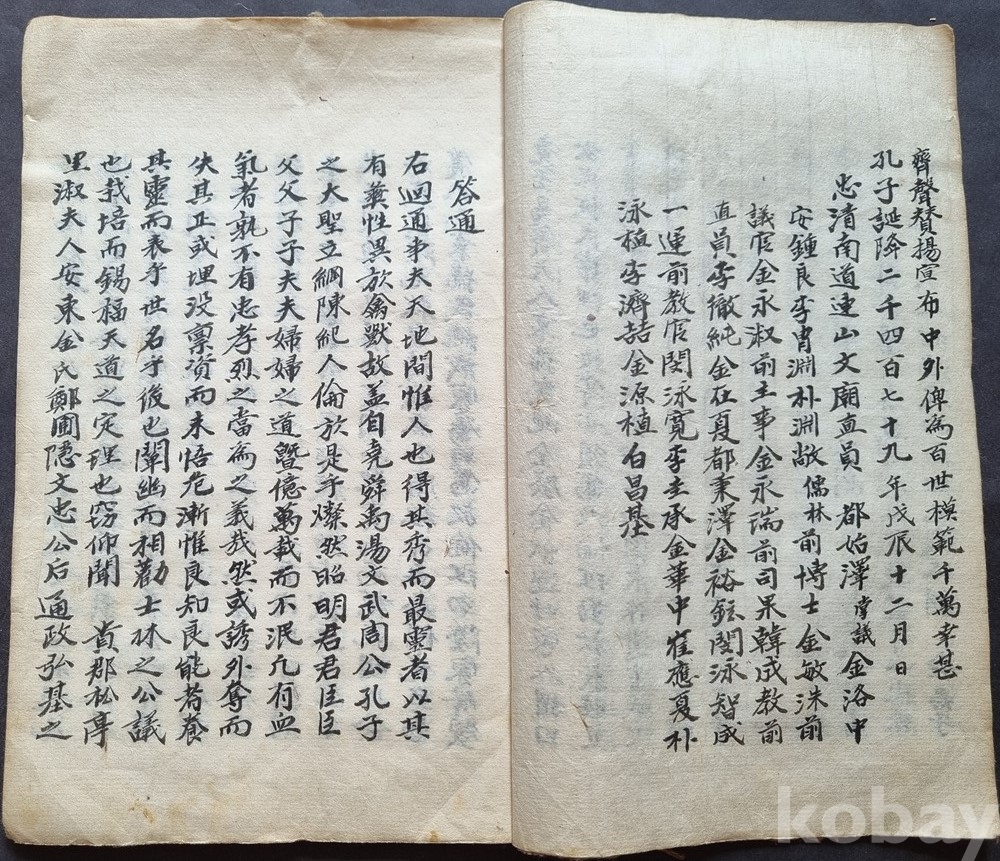 齊聲賛揚宣布中外俾爲百世模範千萬幸甚
孔子誕降二千四百七十九年戊辰十二月日
忠清南道連山文廟直員 都始澤 掌議金洛中
安鍾良李胄淵朴淵敞儒林前博士金敏洙前
議官金永淑前主事金永瑞前司果韓成教前
直員李徹純金在夏都秉澤金裕鉉閔泳智成
一運前教官閔泳寬李圭承金華中崔應夏朴
泳植李濟喆金源植白昌基
答通
右回通事夫天地間惟人也得其秀而最靈者以其
有彛性異於禽獸故盖自堯舜禹湯文武周公孔子
之大聖立綱陳紀人倫於是乎燦然昭明君君臣臣
父父子子夫夫婦婦之道曁億萬載而不泯凡有血
氣者孰不有忠孝烈之當爲之義哉然或誘外奪而
失其正或埋没禀資而未悟危漸惟良知良能者養
其靈而表乎世名乎後也闡幽而相勸士林之公議
也栽培而錫福天道之定理也窃仰聞 貴郡松亭
里淑夫人安東金氏鄭圃隱文忠公后通政弘基之
kobay